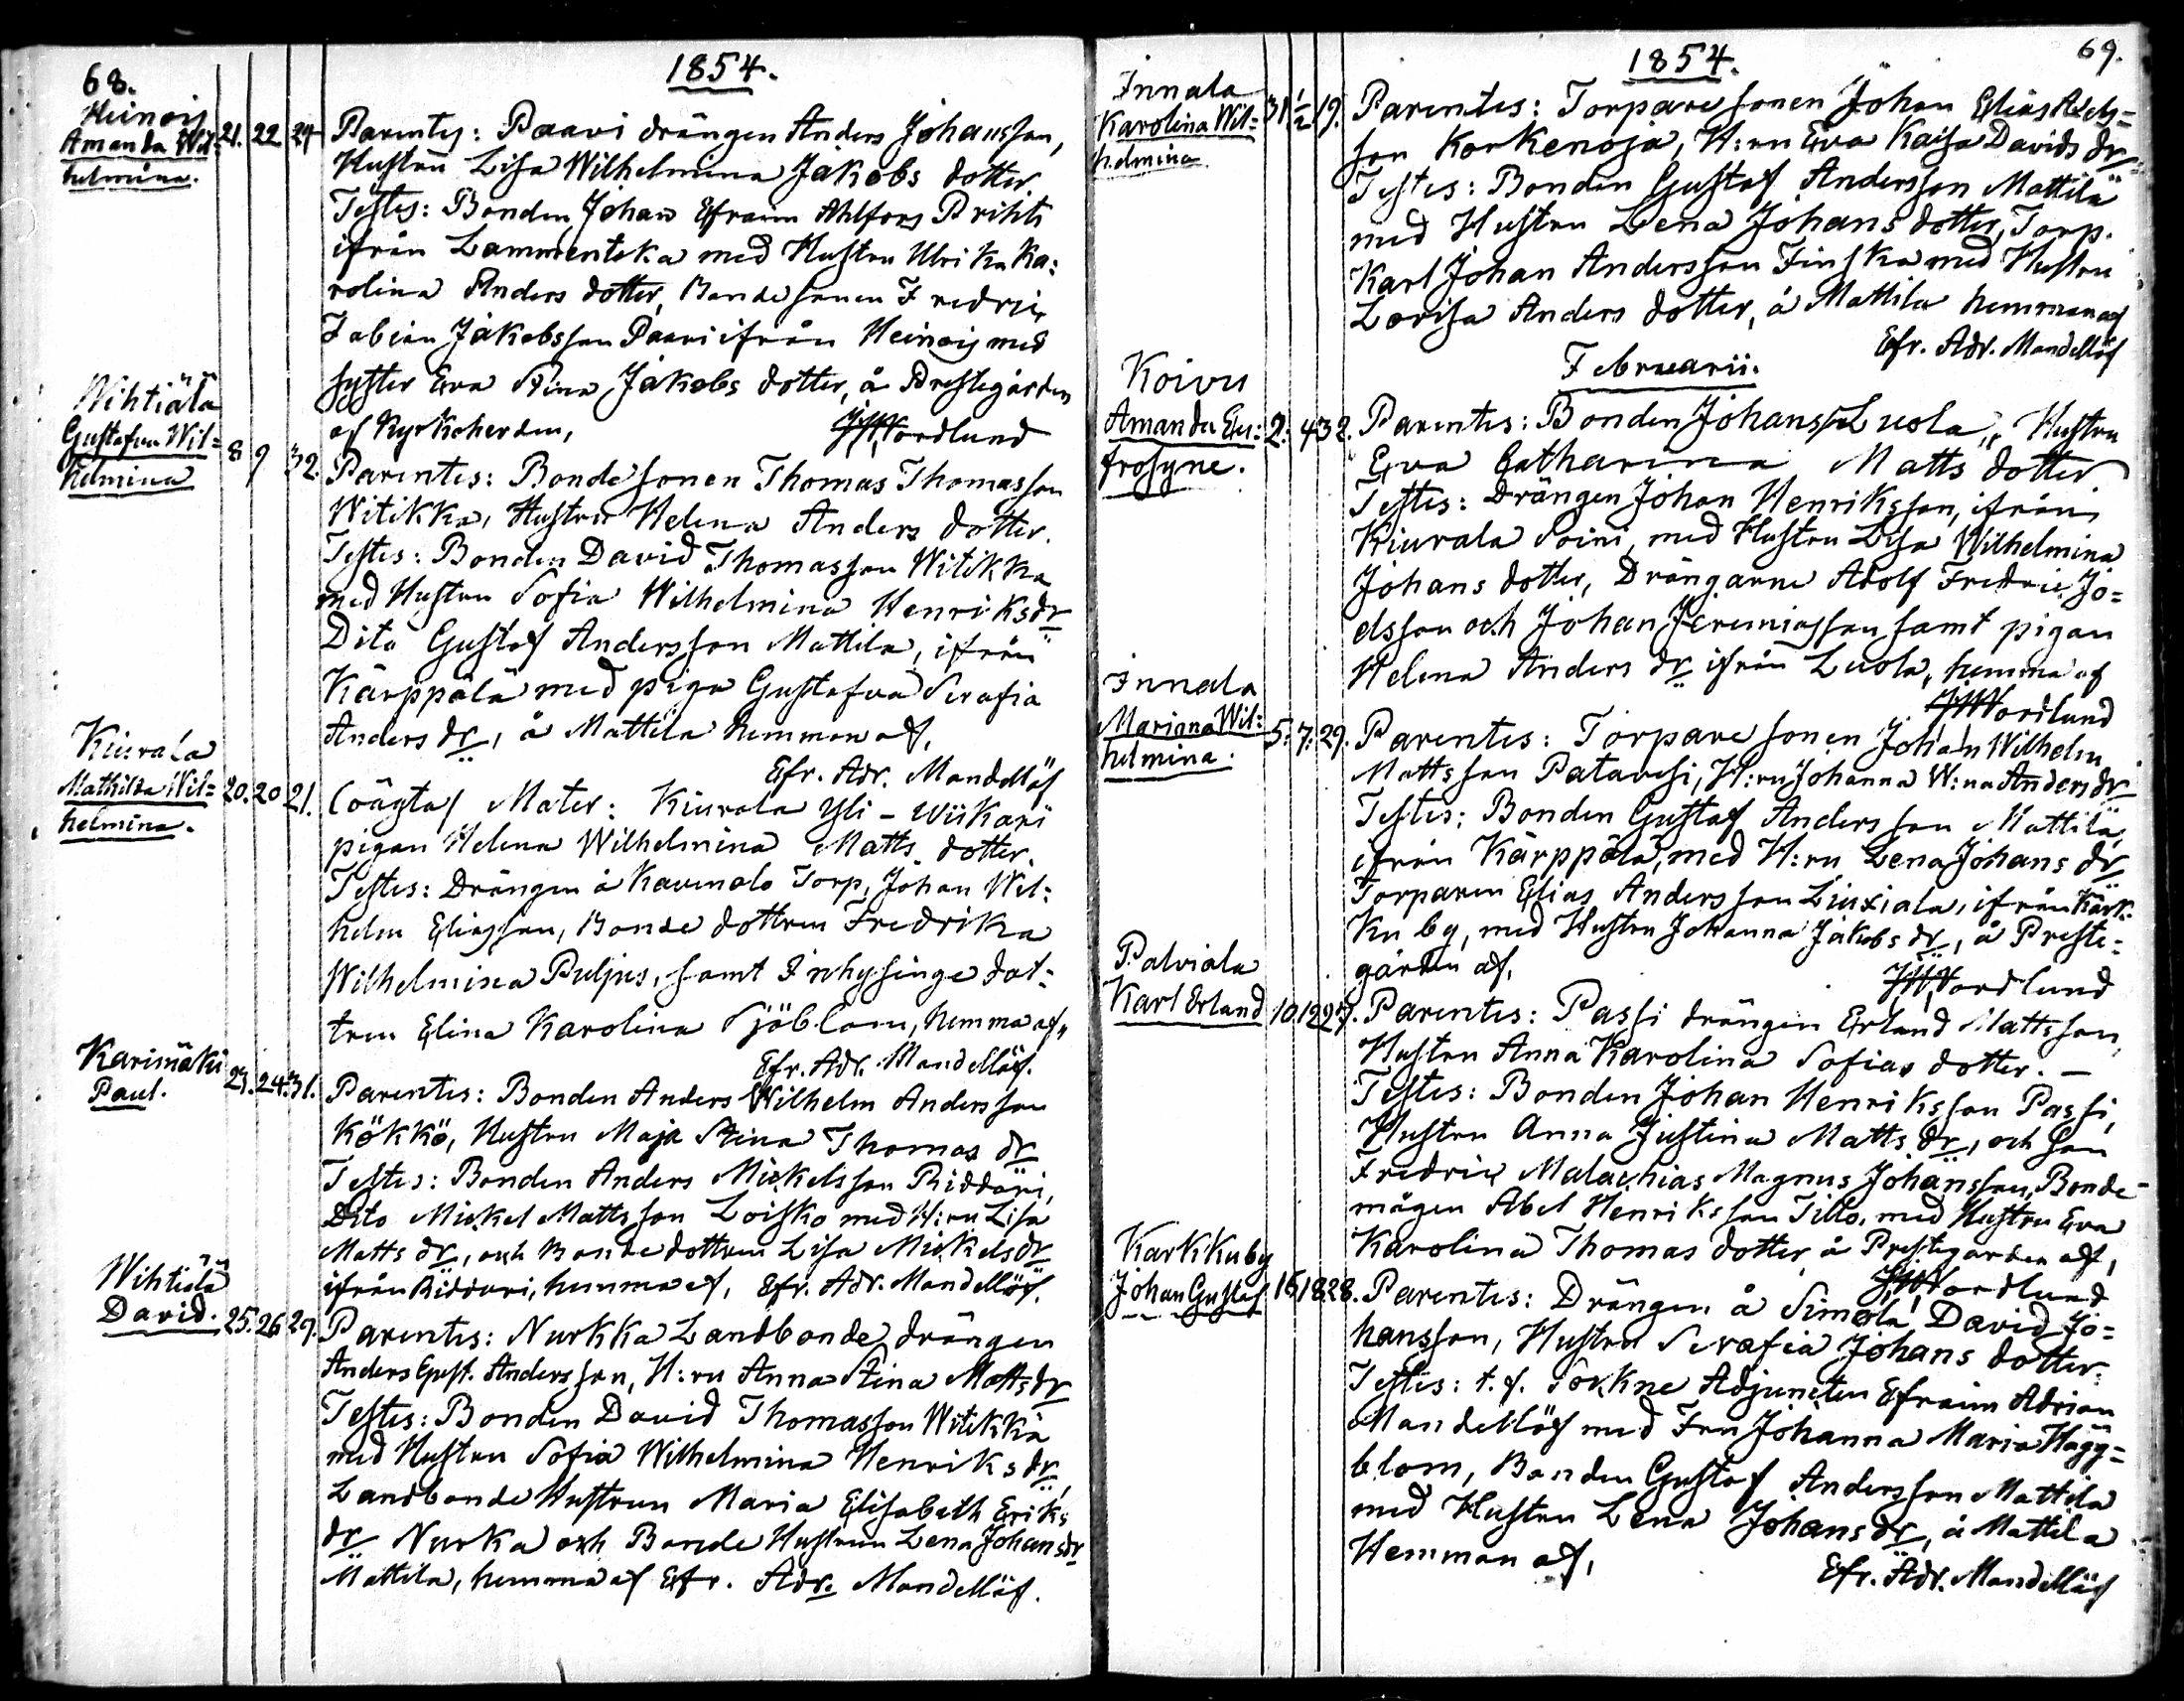 68.
1854.
Heinois
Amanda Wil=
helmina.
21. 22 24
Parentes: Paavi drängen Anders Johansson,
Hustrun Lisa Wilhelmina Jakobs dotter
Testes: Bonden Johan Efraim Ahlfors Prihti
ifrån Lammenteka med Hustru Ulrika Ka=
rolina Anders dotter, Bondesonen Fredric
Fabian Jakobsson Paavi ifrån Heinois med
syster Eva Stina Jakobs dotter, å Prestegården
af Kyrkoherden,
Nordlund
Wihtiälä
Gustafva Wil=
helmina
8 9 32.
Parentes: Bondesonen Thomas Thomasson
Witikka, Hustru Helena Anders dotter.
Testes: Bonden David Thomasson Witikka
med Hustru Sofia Wilhelmina Henriksdr
Dito Gustaf Andersson Mattila, ifrån
Kärppälä med piga Gustafva Serafia
Anders dr, å Mattila hemman af,
Efr. Adr. Mandellöf
Kiurala
Mathilda Wil=
helmina.
20. 20 21.
(oägta) Mater: Kiurala Yli-Wiikari
pigan Helena Wilhelmina Matts dotter.
Testes: Drängen å Kavenalo Torp, Johan Wil=
helm Eliasson, Bonde dottren Fredrika
Wilhelmina Puljus, samt Inhysinge dot=
tren Elina Karolina Sjöblom, hemma af,
Efr. Adr. Mandellöf.
Karimäki
Paul.
23. 24. 31.
Parentes: Bonden Anders Wilhelm Andersson
Kökkö, Hustru Maja Stina Thomas dr
Testes: Bonden Anders Mickelsson Riddari,
Dito Mickel Mattsson Loisko med H:ru Lisa
Matts dr, och Bonde dottren Lisa Mickelsdr
ifrån Riddari, hemma af, Efr. Adr. Mandellöf.
Wihtiälä
David.
25. 26 29.
Parentes: Nurkka Landbonde drängen
Anders Gust. Andersson, H:ru Anna Stina Mattsdr
Testes: Bonden David Thomasson Witikka
med Hustru Sofia Wilhelmina Henriks dr,
Landbonde Hustrun Maria Elisabeth Eriks
dr Nurka och Bonde Hustrun Lena Johansdr
Mattila, hemma af Efr. Adr. Mandellöf.
69.
1854.
Innala
Karolina Wil=
helmina
31 1/2 19.
Parentes: Torparesonen Johan Elias Axels=
son Korkenoja, H:ru Eva Kaisa Davids dr
Testes: Bonden Gustaf Andersson Mattila
med Hustru Lena Johans dotter, Torp.
Karl Johan Andersson Finska med Hustru
Lovisa Anders dotter, å Mattila hemman af
Efr. Adr. Mandellöf
Februarii.
Koivu
Amanda Eu=
frosyne.
2. 4 32.
Parentes: Bonden Johansson Luola, Hustru
Eva Catharina Matts dotter
Testes: Drängen Johan Henriksson, ifrån
Kiurala Soini, med Hustru Lisa Wilhelmina
Johans dotter, Drängarne Adolf Fredric Jo=
elsson och Johan Jeremiasson samt pigan
Helena Anders dr ifrån Luola, hemma af
Nordlund
Innala
Mariana Wil=
helmina.
5. 7. 29.
Parentes: Torpare sonen Johan Wilhelm
Mattsson Patavesi, H:ru Johanna W:na Andersdr
Testes: Bonden Gustaf Andersson Mattila
ifrån Kärppälä, med H:ru Lena Johans dr
Torparen Elias Andersson Liuxiala, ifrån Kark=
ku by, med Hustru Johanna Jakobs dr, å Preste=
gården af,
Nordlund
Palviala
Karl Erland
10. 12 27.
Parentes: Passi drängen Erland Mattsson,
Hustru Anna Karolina Sofias dotter. —
Testes: Bonden Johan Henriksson Passi,
Hustru Anna Justina Matts dr, och son
Fredric Malachias Magnus Johansson, Bonde=
mågen Abel Henriksson Tillo, med Hustru Eva
Karolina Thomas dotter å Prestegården af,
Nordlund
Karkkuby
Johan Gustaf.
16. 18 28.
Parentes: Drängen å Simola, David Jo=
hansson, Hustru Serafia Johans dotter.
Testes: t. f. Sockne Adjuncten Efraim Adrian
Mandellöf med Fru Johanna Maria Hägg=
blom, Bonden Gustaf Andersson Mattila
med Hustru Lena Johansdr, å Mattila
Hemman af,
Efr. Adr. Mandellöf